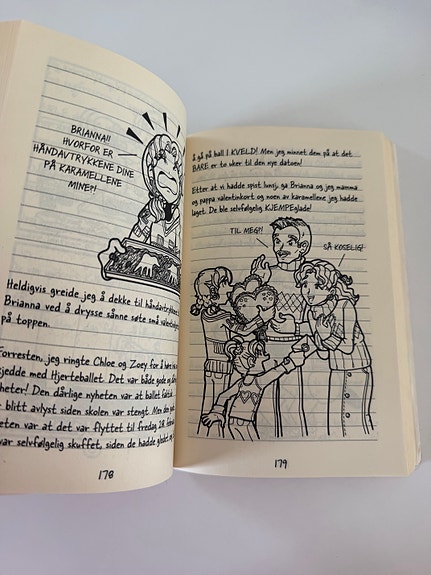 BRIANNA!!
HVORFOR ER
HÅNDAVTRYKKENE DINE
PÅ KARAMELLENE
MINE?!
Heldigvis greide jeg å dekke til håndavtrykkene
Brianna ved å drysse sånne søte små
på toppen.
Forresten, jeg ringte Chloe og Zoey for å
skjedde med Hjerteballet. Det var både gode og
nyheter! Den dårlige nyheten var at ballet faktisk
blitt avlyst siden skolen var stengt. Men den
nyheten var at det var flyttet til fredag 28.
var selvfølgelig skuffet, siden de hadde gledet
178
å gå på ball I KVELD! Men jeg minnet dem på at det
BARE er to uker til den nye datoen!
Etter at vi hadde spist lunsj, ga Brianna og jeg mamma
og pappa valentinkort og noen av karamellene jeg hadde
laget. De ble selvfølgelig KJEMPEglade!
TIL MEG?!
SÅ KOSELIG!
179